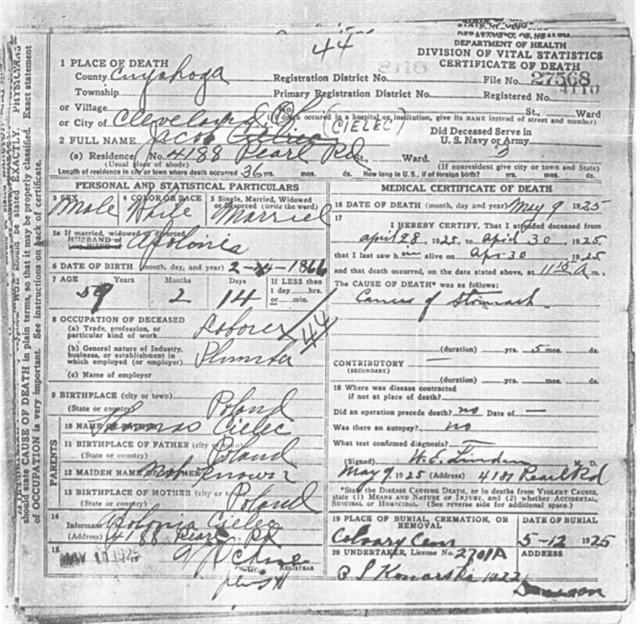 44
DEPARTMENT OF HEALTH
DIVISION OF VITAL STATISTICS
CERTIFICATE OF DEATH
1 PLACE OF DEATH
County Cuyahoga
Registration District No. 8118
File No. 27568
Township
Primary Registration District No.
Registered No. 4110
or Village
or City of Cleveland O
St., Ward
(If death occured in a hospital or institution, give its NAME instead of street and number)
2 FULL NAME Jacob (CIELEC)
Did Deceased Serve in
U. S. Navy or Army
(a) Residence No. 4188 Pearl Rd St., Ward.
(Usual place of abode)
(If nonresident give city or town and State)
Length of residence in city or town where death occurred 36 yrs. mos. ds. How long in U.S., if of foreign birth? yrs. mos. ds.
PERSONAL AND STATISTICAL PARTICULARS
3 SEX Male
4 COLOR OR RACE White
5 Single, Married, Widowed or Divorced (write the word) Married
5a If married, widowed or divorced
HUSBAND of Apolonia
6 DATE OF BIRTH (month, day, and year) 2- -1866
7 AGE 59 Years 2 Months 14 Days If LESS than 1 day hrs. or min.
8 OCCUPATION OF DECEASED
(a) Trade, profession, or particular kind of work Laborer
44
(b) General nature of Industry, business, or establishment in which employed (or employer)
(c) Name of employer
9 BIRTHPLACE (city or town)
(State or country) Poland
10 NAME Thomas Cielec
PARENTS
11 BIRTHPLACE OF FATHER (city or town)
(State or country) Poland
12 MAIDEN NAME Not Known
13 BIRTHPLACE OF MOTHER (city or town)
(State or country) Poland
14 Informant Apolonia Cielec
(Address) 4188 Pearl Rd
15
REGISTRAR
MEDICAL CERTIFICATE OF DEATH
16 DATE OF DEATH (month, day and year) May 9 1925
17
I HEREBY CERTIFY, That I attended deceased from
april 28, 1925, to april 30, 1925
that I last saw him alive on Apr 30, 1925
and that death occurred, on the date stated above, at 11 A m.
The CAUSE OF DEATH* was as follows:
Cancer of Stomach
(duration) yrs. 5 mos. ds.
CONTRIBUTORY
(SECONDARY)
(duration) yrs. mos. ds.
18 Where was disease contracted
if not at place of death?
Did an operation precede death? no Date of —
Was there an autopsy? no
What test confirmed diagnosis? —
(Signed) M. D.
May 9, 1925 (Address) 4181 Pearl Rd
*State the DISEASE CAUSING DEATH, or in deaths from VIOLENT CAUSES,
state (1) MEANS AND NATURE OF INJURY, and (2) whether ACCIDENTAL,
SUICIDAL or HOMICIDAL. (See reverse side for additional space.)
19 PLACE OF BURIAL, CREMATION, OR REMOVAL
Calvary Cem
DATE OF BURIAL
5-12 1925
20 UNDERTAKER, License No. 2701A
ADDRESS
Konarski
should state CAUSE OF DEATH in plain terms, so that it may be properly classified. Exact statement
of OCCUPATION is very important. See instructions on back of certificate.